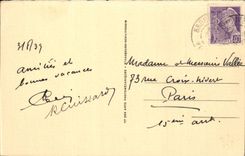 31/8/39
Amitiés et
bonnes vacances
R Cuissard
Madame et Messieurs Vallée
73 rue Croix-Nivert
Paris
15 em arr.